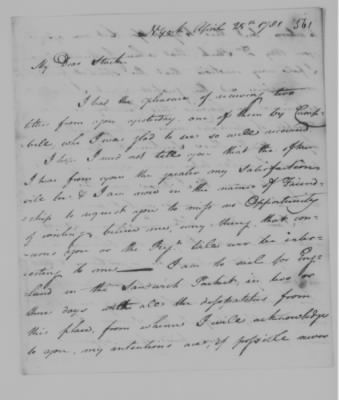 NYork April 28th 1781 561
My Dear Stark
I had the pleasure of receiving two
letters from you yesterday, one of them by Camp-
bell who I was glad to see so well recovered
I hope I need not tell you that the oftner
I hear from you the greater my Satisfaction
will be & I am now in the name of Friend-
ship to request you to miss no Opportunity
of writing, believe me, every thing that con-
cerns you or the Regt will ever be inter-
esting to me — I am to sail for Eng-
land in the Sandwich Packet, in two or
three days with all the dispatches from
this place, from whence I will acknowledge
to you, my intentions and, if possible